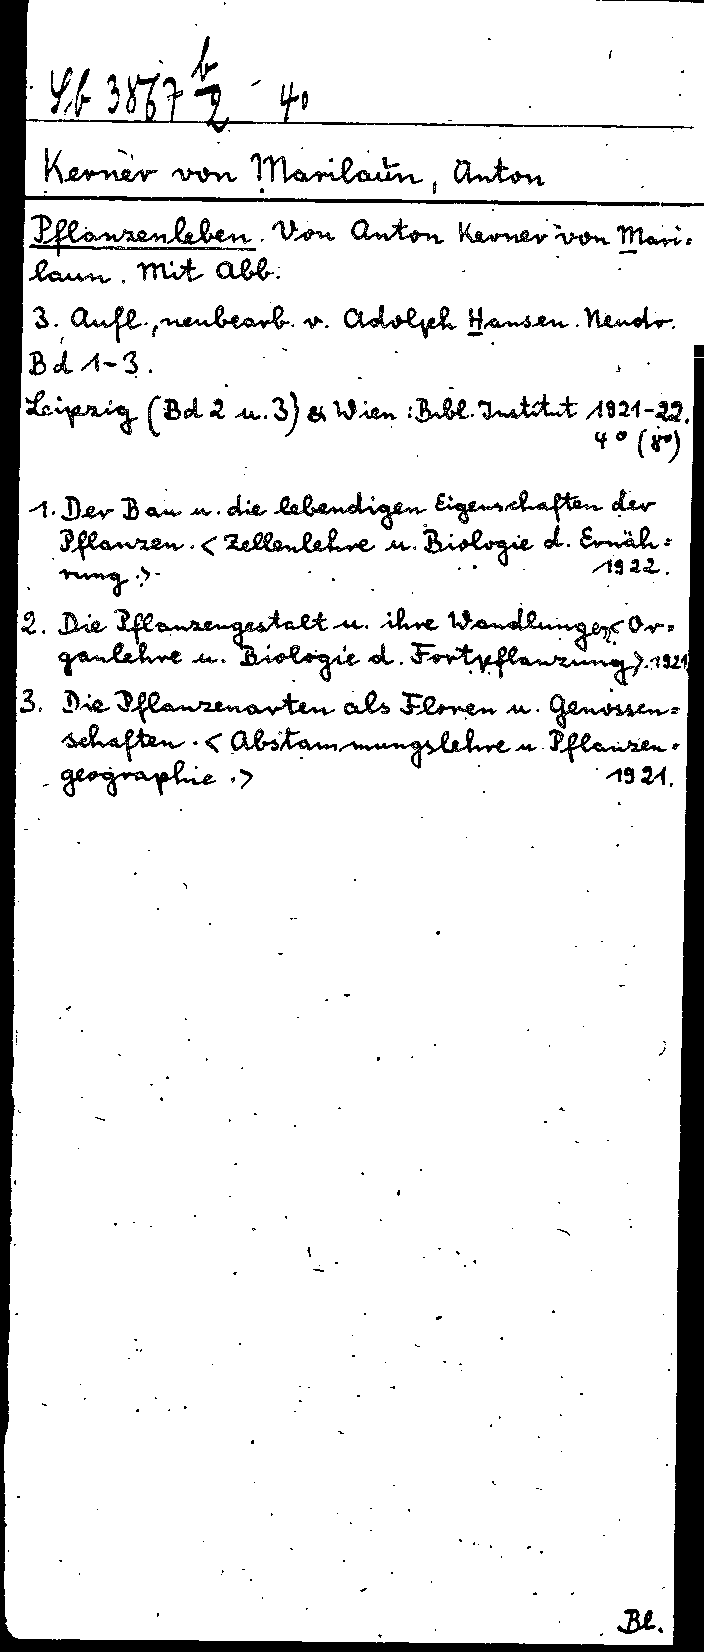 Lb 3867 b/2 - 4°
Kerner von Marilaun, Anton
Pflanzenleben. Von Anton Kerner von Mari=
laun. Mit Abb.
3. Aufl., neubearb. v. Adolph Hansen. Neudr.
Bd 1-3.
Leipzig (Bd 2 u. 3) & Wien: Bibl. Institut 1921-22.
4° (8°)
1. Der Bau u. die lebendigen Eigenschaften der
Pflanzen. < Zellenlehre u. Biologie d. Ernäh=
rung.>
1922.
2. Die Pflanzengestalt u. ihre Wandlungen < Or=
ganlehre u. Biologie d. Fortpflanzung>. 1921
3. Die Pflanzenarten als Floren u. Genossen=
schaften. < Abstammungslehre u. Pflanzen=
geographie.> 1921.
Bl.